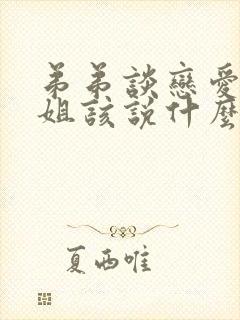 弟弟談戀愛
姐該說什麼
夏西唯